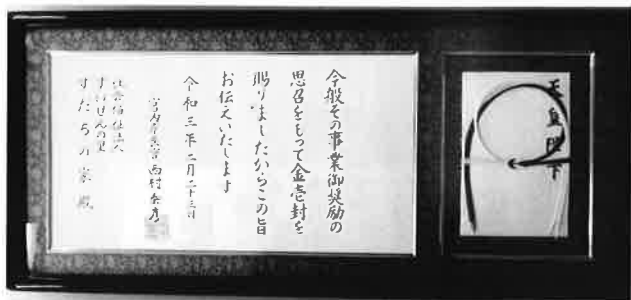 天皇陛下
今般その事業御奨励の
思召をもって金壱封を
賜りましたからこの旨
お伝えいたします
令和三年二月二十三日
宮内庁長官西村泰彦
社会福祉法人
すいせんの里
すだちの家 殿